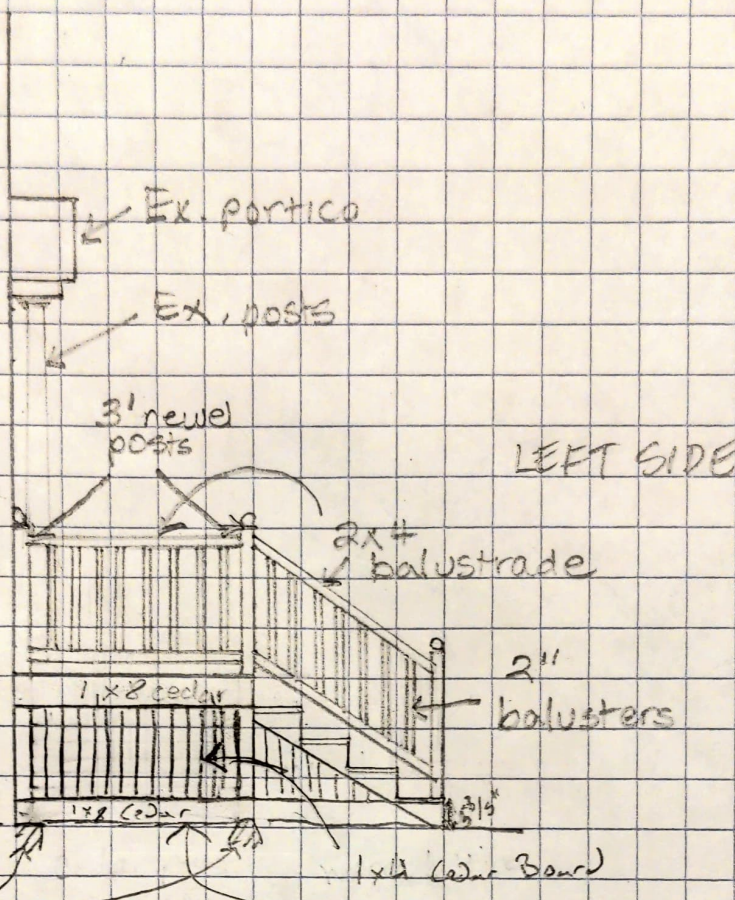 Ex. portico
Ex. posts
3' newel
posts
LEFT SIDE
2x4
balustrade
2"
balusters
1x8 cedar
1x8 Cedar
1x4 Cedar Board